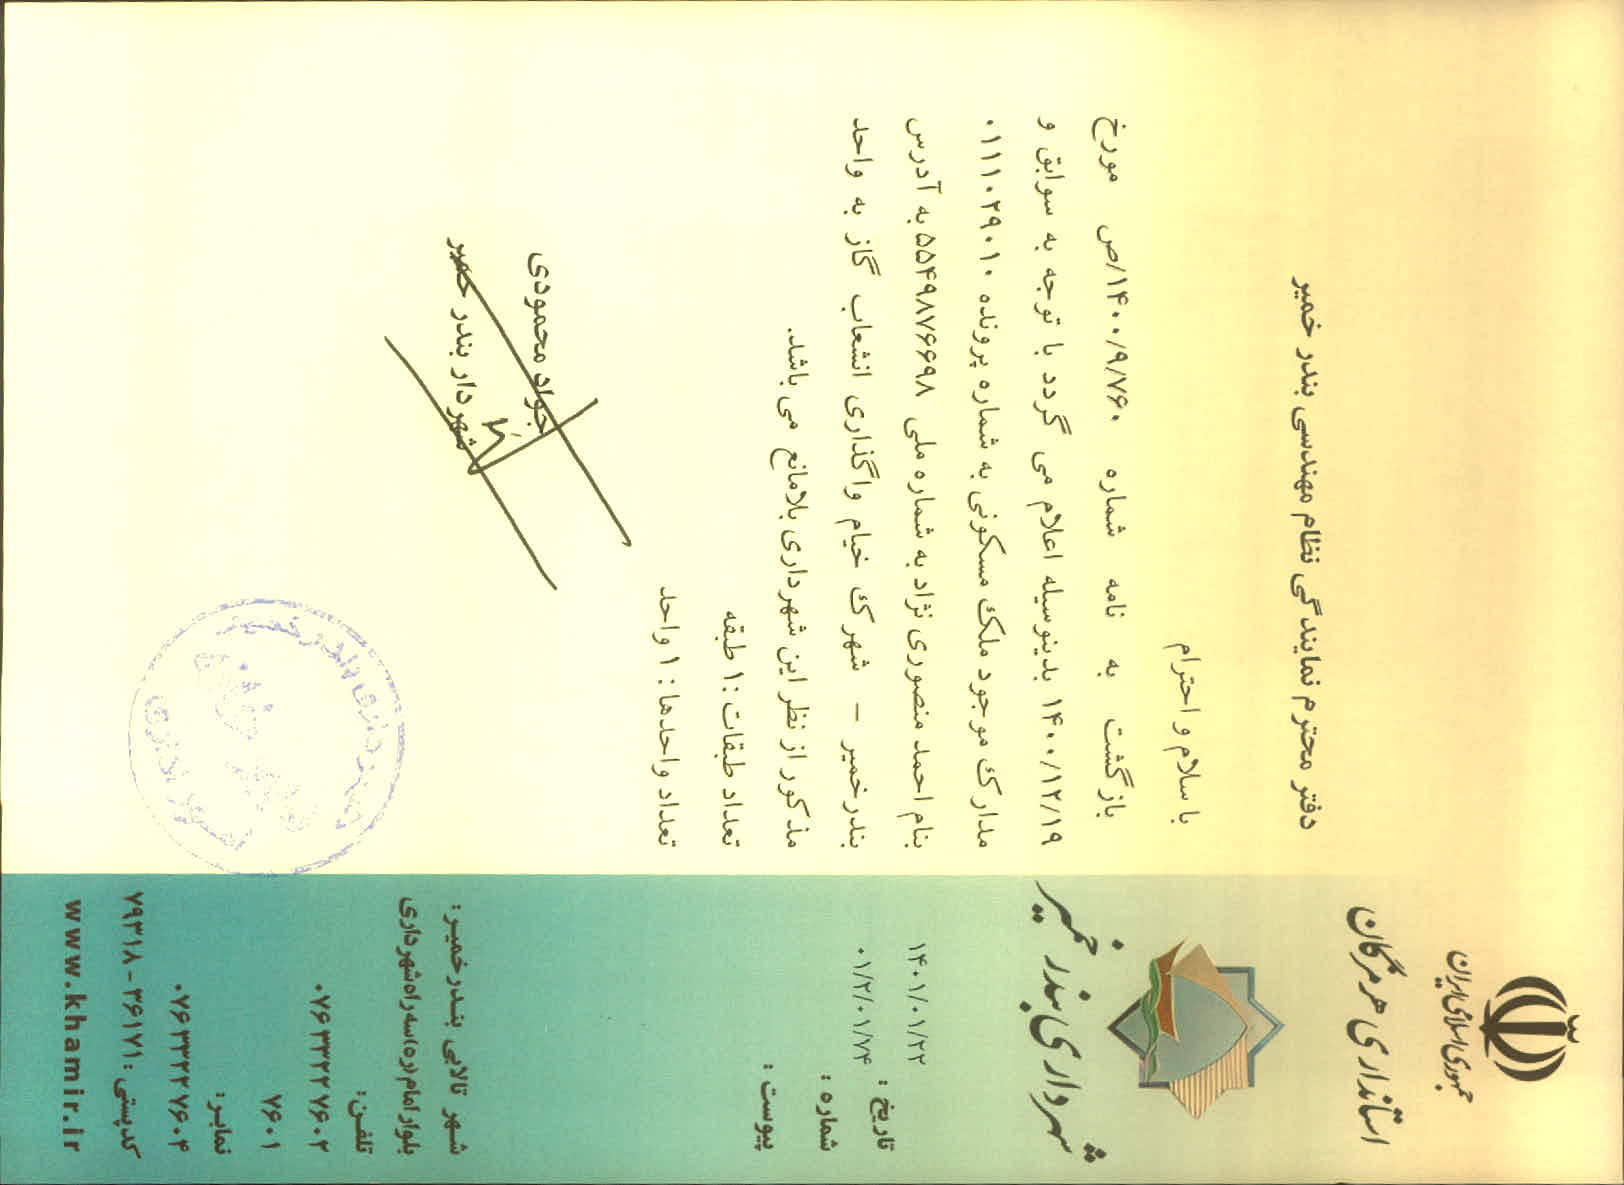 جمهوری اسلامی ایران
استانداری هرمزگان
شهرداری بندر خمیر
۱۴۰۱/۰۱/۲۲
تاریخ :
۰۱/۲/۰۱/۷۴
شماره :
پیوست :
دفتر محترم نمایندگی نظام مهندسی بندر خمیر
با سلام و احترام
بازگشت به نامه شماره ۱۴۰۰/۹/۷۶۰/ص مورخ
۱۴۰۰/۱۲/۱۹ بدینوسیله اعلام می گردد با توجه به سوابق و
مدارک موجود ملک مسکونی به شماره پرونده ۰۱۱۱۰۲۹۰۱۰
بنام احمد منصوری نژاد به شماره ملی ۵۵۴۹۸۷۶۶۹۸ به آدرس
بندرخمیر – شهرک خیام واگذاری انشعاب گاز به واحد
مذکور از نظر این شهرداری بلامانع می باشد.
تعداد طبقات :۱ طبقه
تعداد واحدها : ۱ واحد
جواد محمودی
شهردار بندر خمیر
شهر تالابی بندرخمیر :
بلوار امام (ره) سه راه شهرداری
تلفن:
۰۷۶۳۳۲۲۷۶۰۲
۷۶۰۱
نمابر:
۰۷۶۳۳۲۲۷۶۰۴
کدپستی : ۳۶۱۷۱ - ۷۹۳۱۸
www.khamir.ir